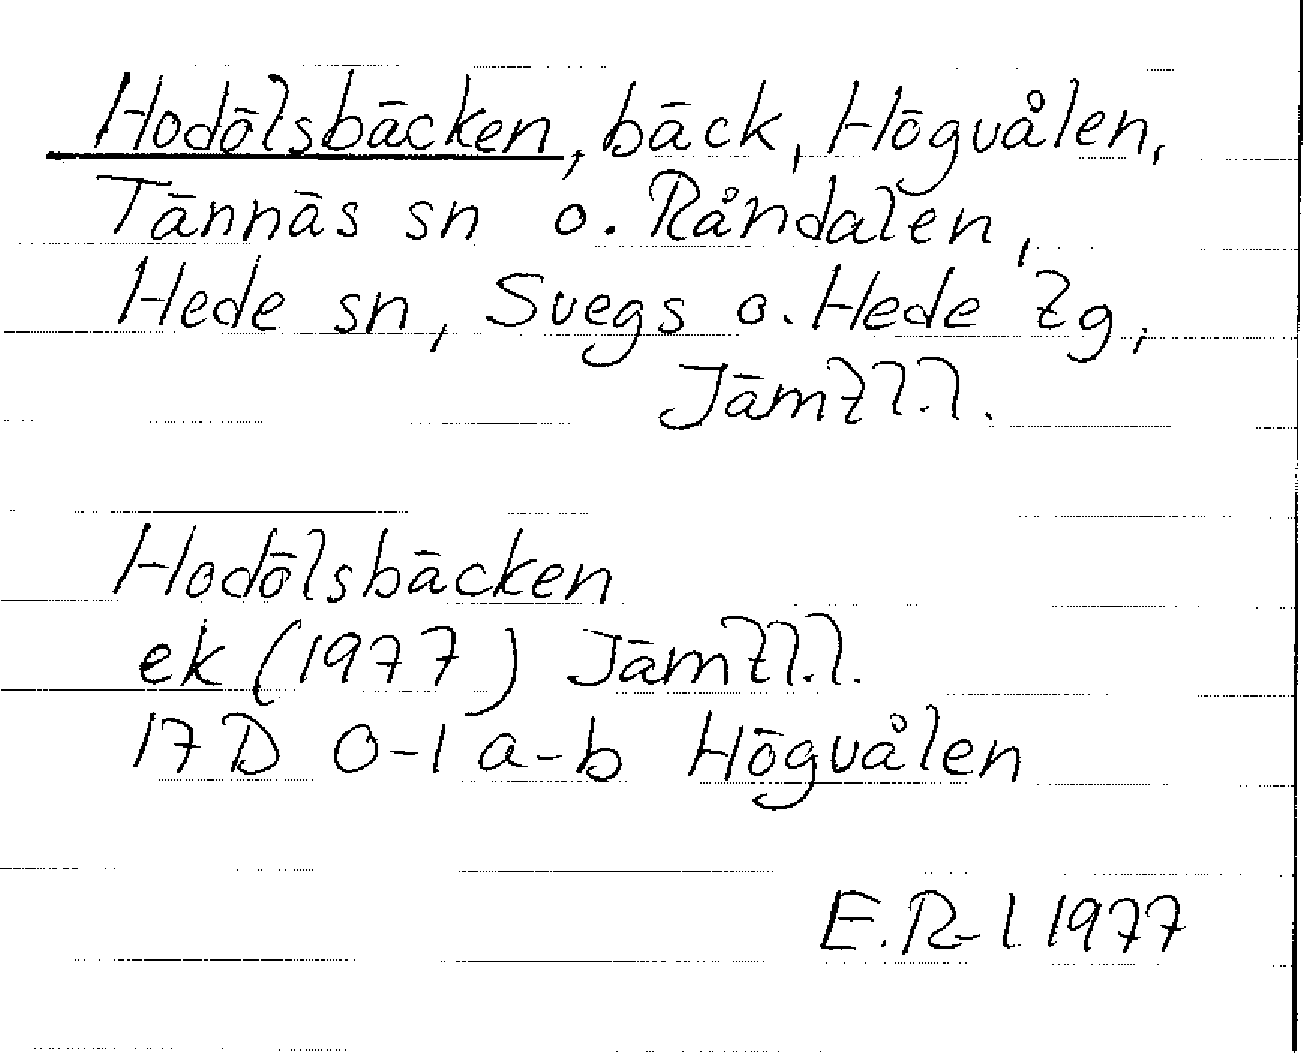 Hodölsbäcken, bäck, Högvålen,
Tännäs sn o. Råndalen,
Hede sn, Svegs o. Hede tg,
Jämtl.l.
Hodölsbäcken
ek (1977) Jämtl.l.
17D 0-1 a-b Högvålen
E.R-l 1977